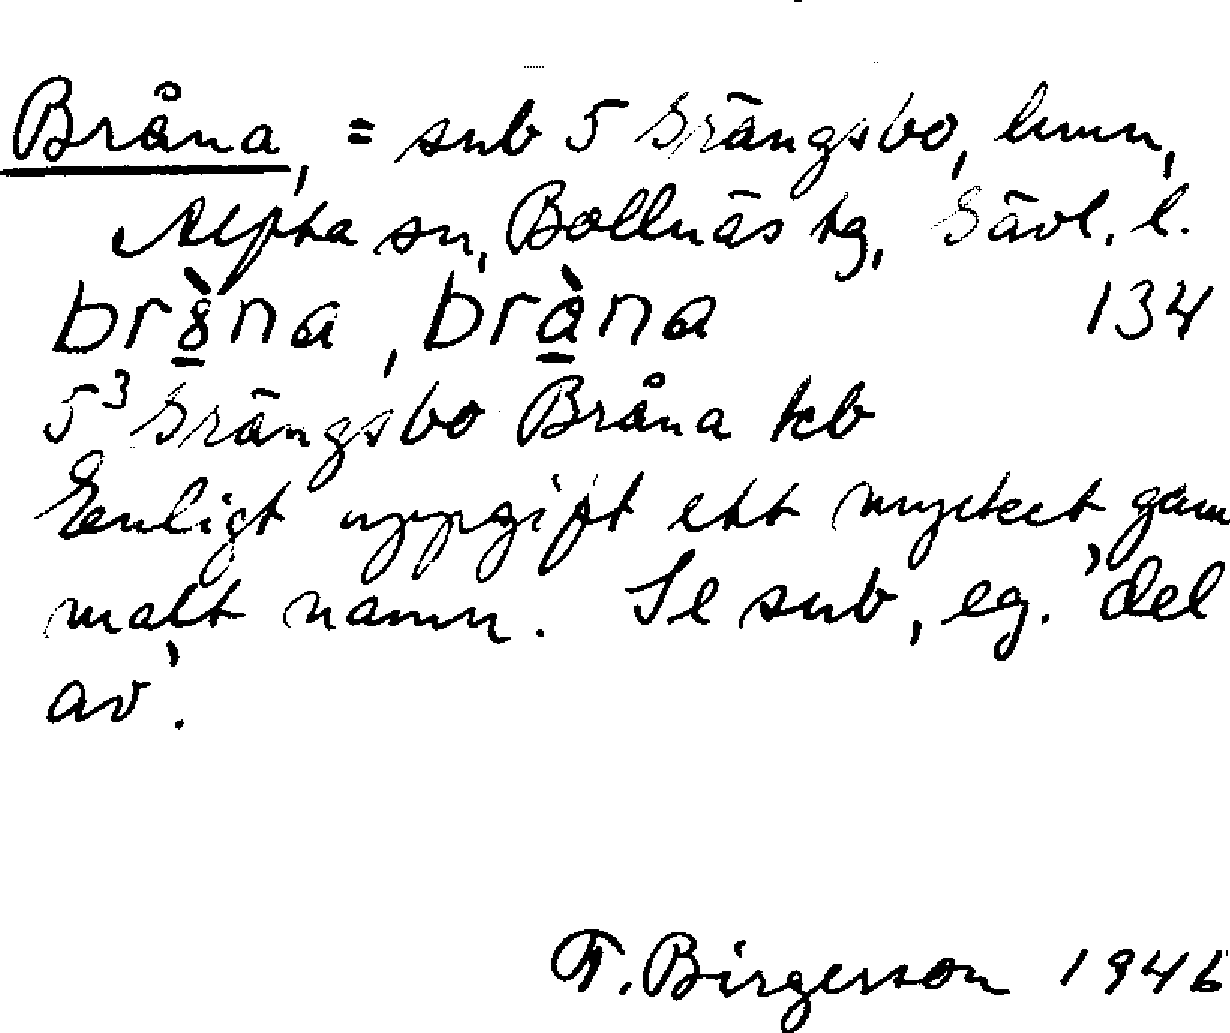 Bråna, = sub 5 Grängsbo, hmn,
Alfta sn, Bollnäs tg, Gävl. l.
brä̀na, brä̀na 134
5³ Grängsbo Bråna kb
Enligt uppgift ett mycket gam
malt namn. Se sub, eg. 'del
av'.
F. Birgerson 1946